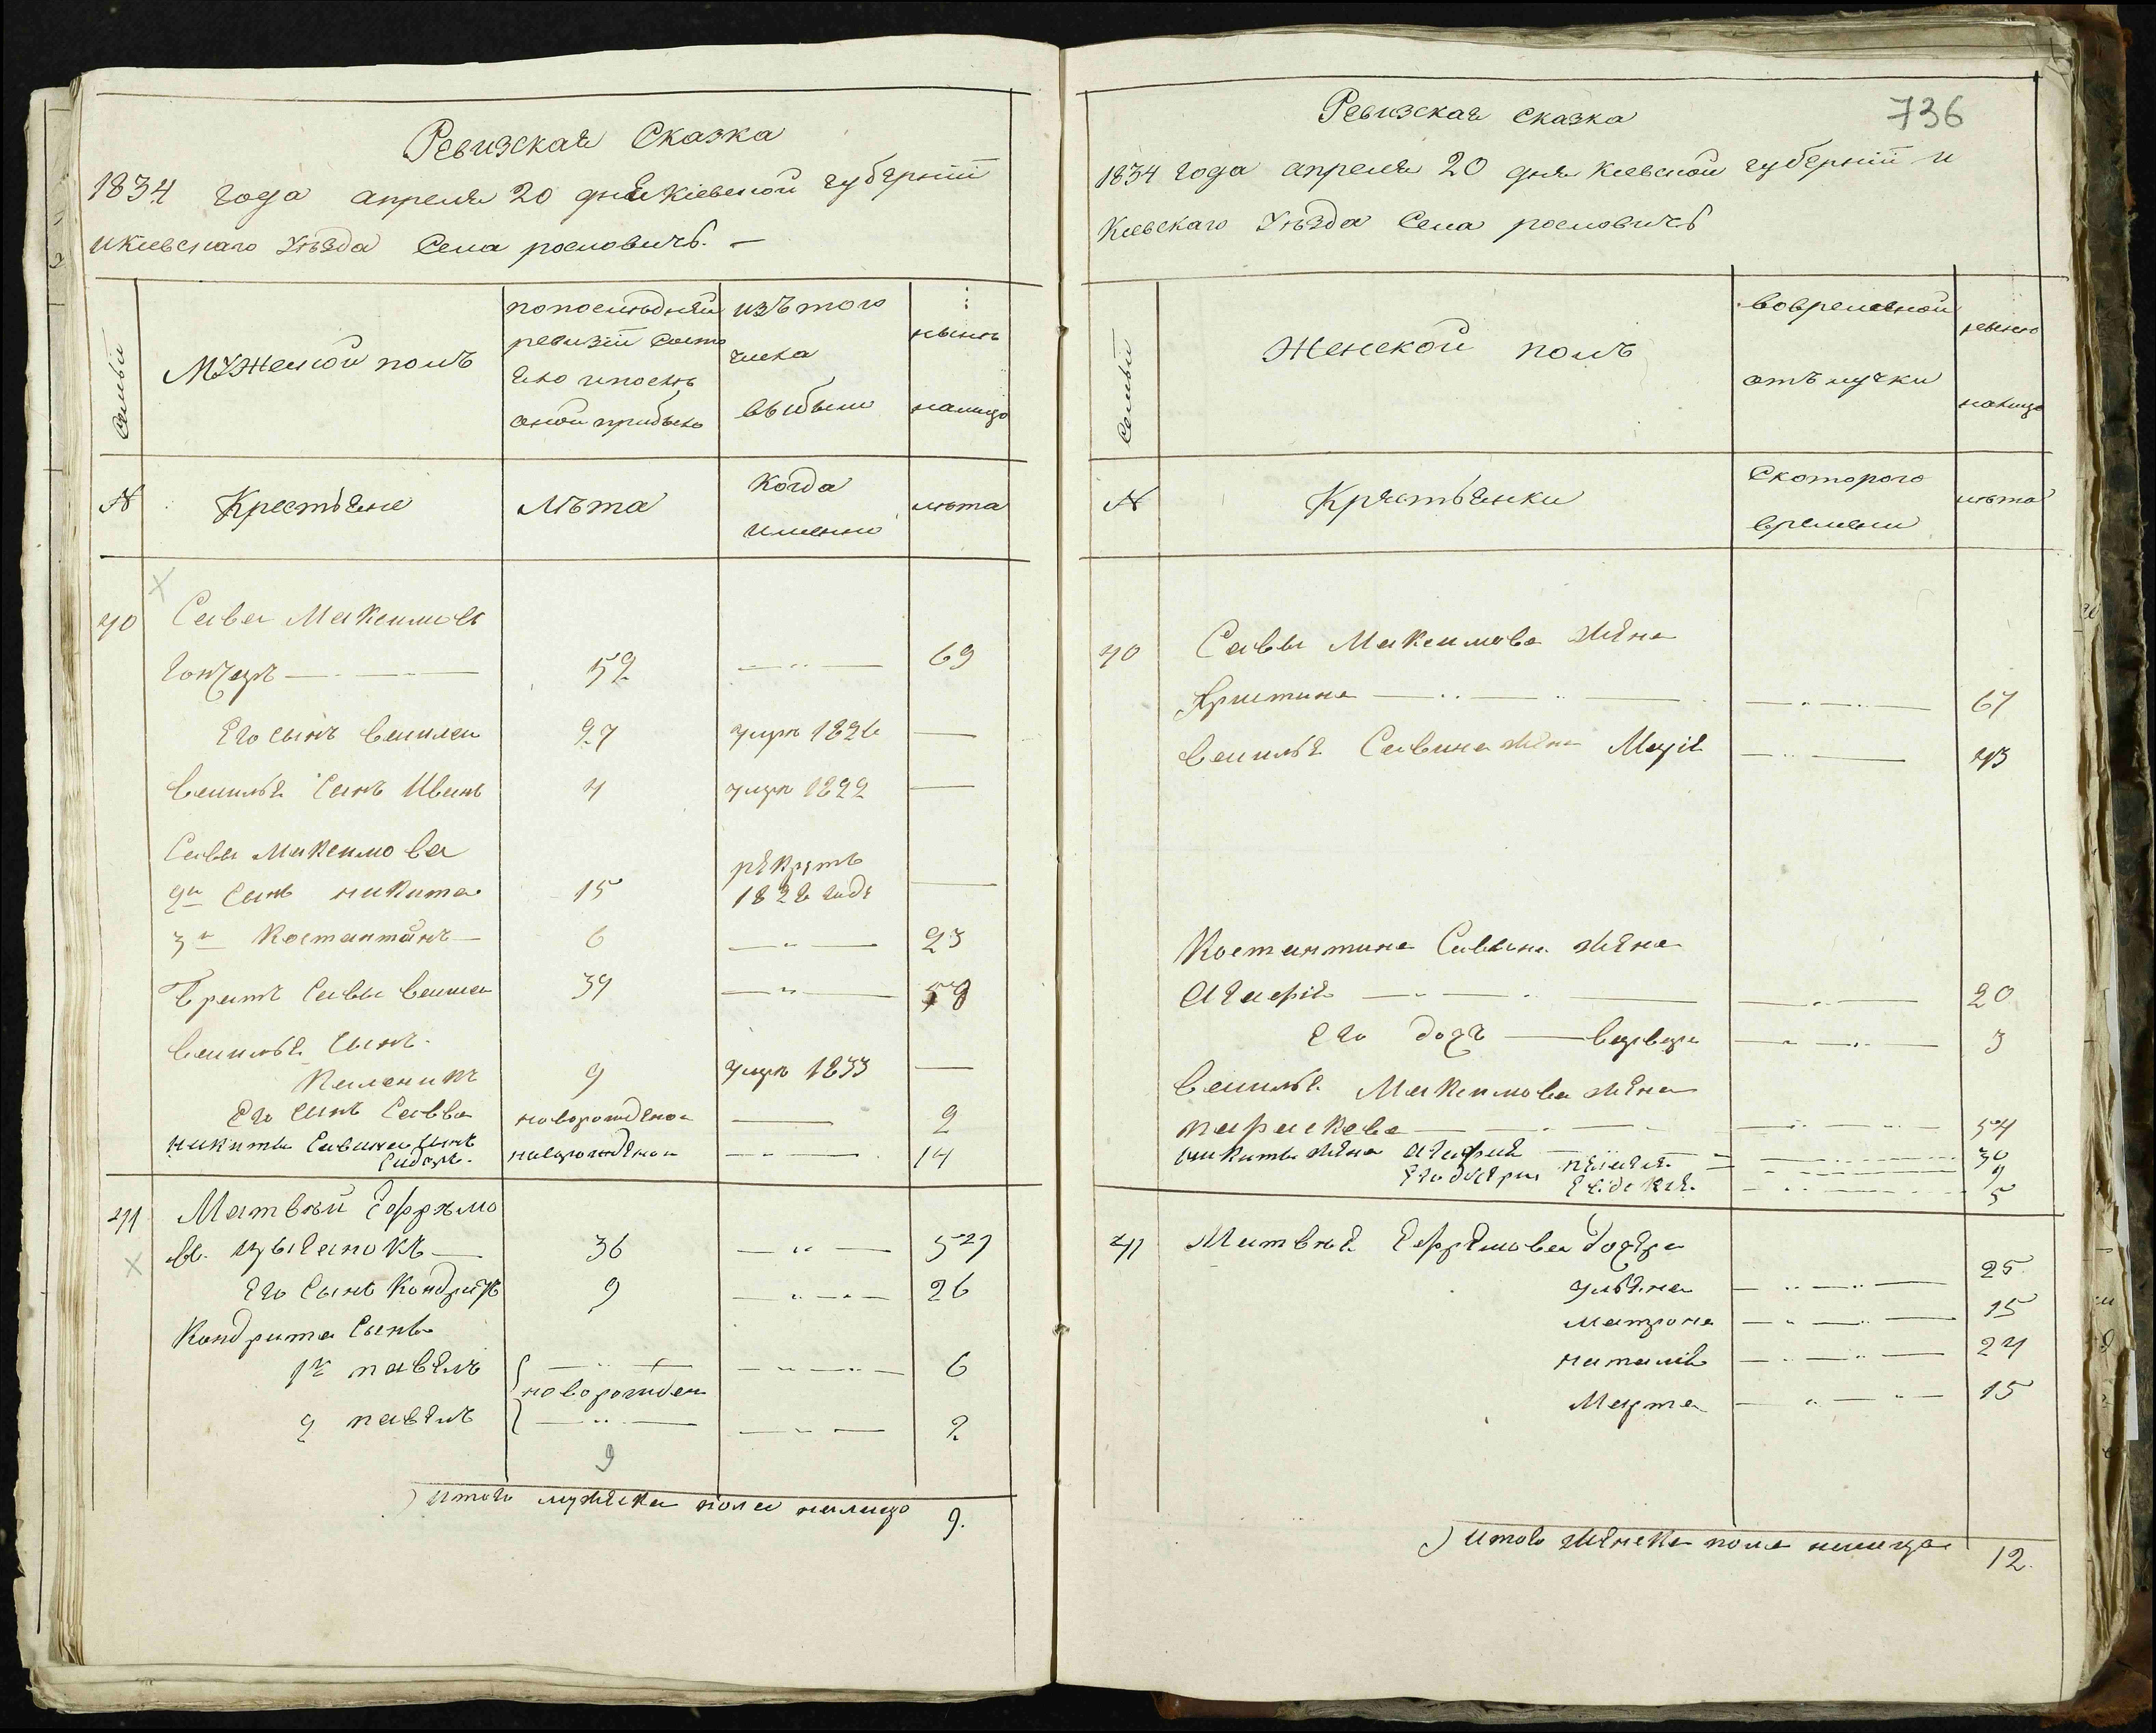 Ревизская Сказка
1834 года апреля 20 дня Кіевской губерніи
и Кіевскаго Уѣзда Села рославичъ. —
Семьи
Мужеской полъ
по последней ревизіи состояло и после оной прибыло
изъ того числа выбыло
нынѣ налицо
№
Крестьяне
Лѣта
Когда именно
лѣта
40 Сава Максимовъ
Гончаръ — 59 — 69
Его сынъ Василей 27 умре 1826 —
Василья Сынъ Иванъ 4 умре 1822 —
Савы Максимова
2й Сынъ никита 15 рекрутъ 182 годе —
3й Костантинъ — 6 — 23
Братъ Савы Василей 39 —
Василья Сынъ
Каленикъ 9 умре 1833 —
Его сынъ Савва новорожденой — 2
никиты Савина Сынъ
Сидоръ новорожденой — 14
41 Матвѣй Ефремо
въ цыганокъ — 36 —
Его Сынъ Кондратъ 9 — 26
Кондрата Сынъ
1й павелъ — 6
новорожден
2 павелъ — 2
9
Итого мужеска пола налицо 9.
736
Ревизская Сказка
1834 года апреля 20 дня Кіевской губерніи и
Кіевскаго Уѣзда Села рославичъ
Семьи
Женской полъ
во временной отлучки
ревизо налицо
№
Крестьянки
С которого времени
лѣта
40 Савы Максимова жена
Христина — 67
Василья Савина жена Марія — 43
Костантина Савина жена
Агафія — 20
Его дочъ — Варвара — 3
Василья Максимова жена
параскева — 54
никиты жена Агафия — 30
Его дочери пелагея — 9
Евдокия — 5
41 Матвѣя Ефремова дочера
ульяна — 25
матрона — 15
наталія — 24
Марта — 15
Итого женска пола налицо 12.